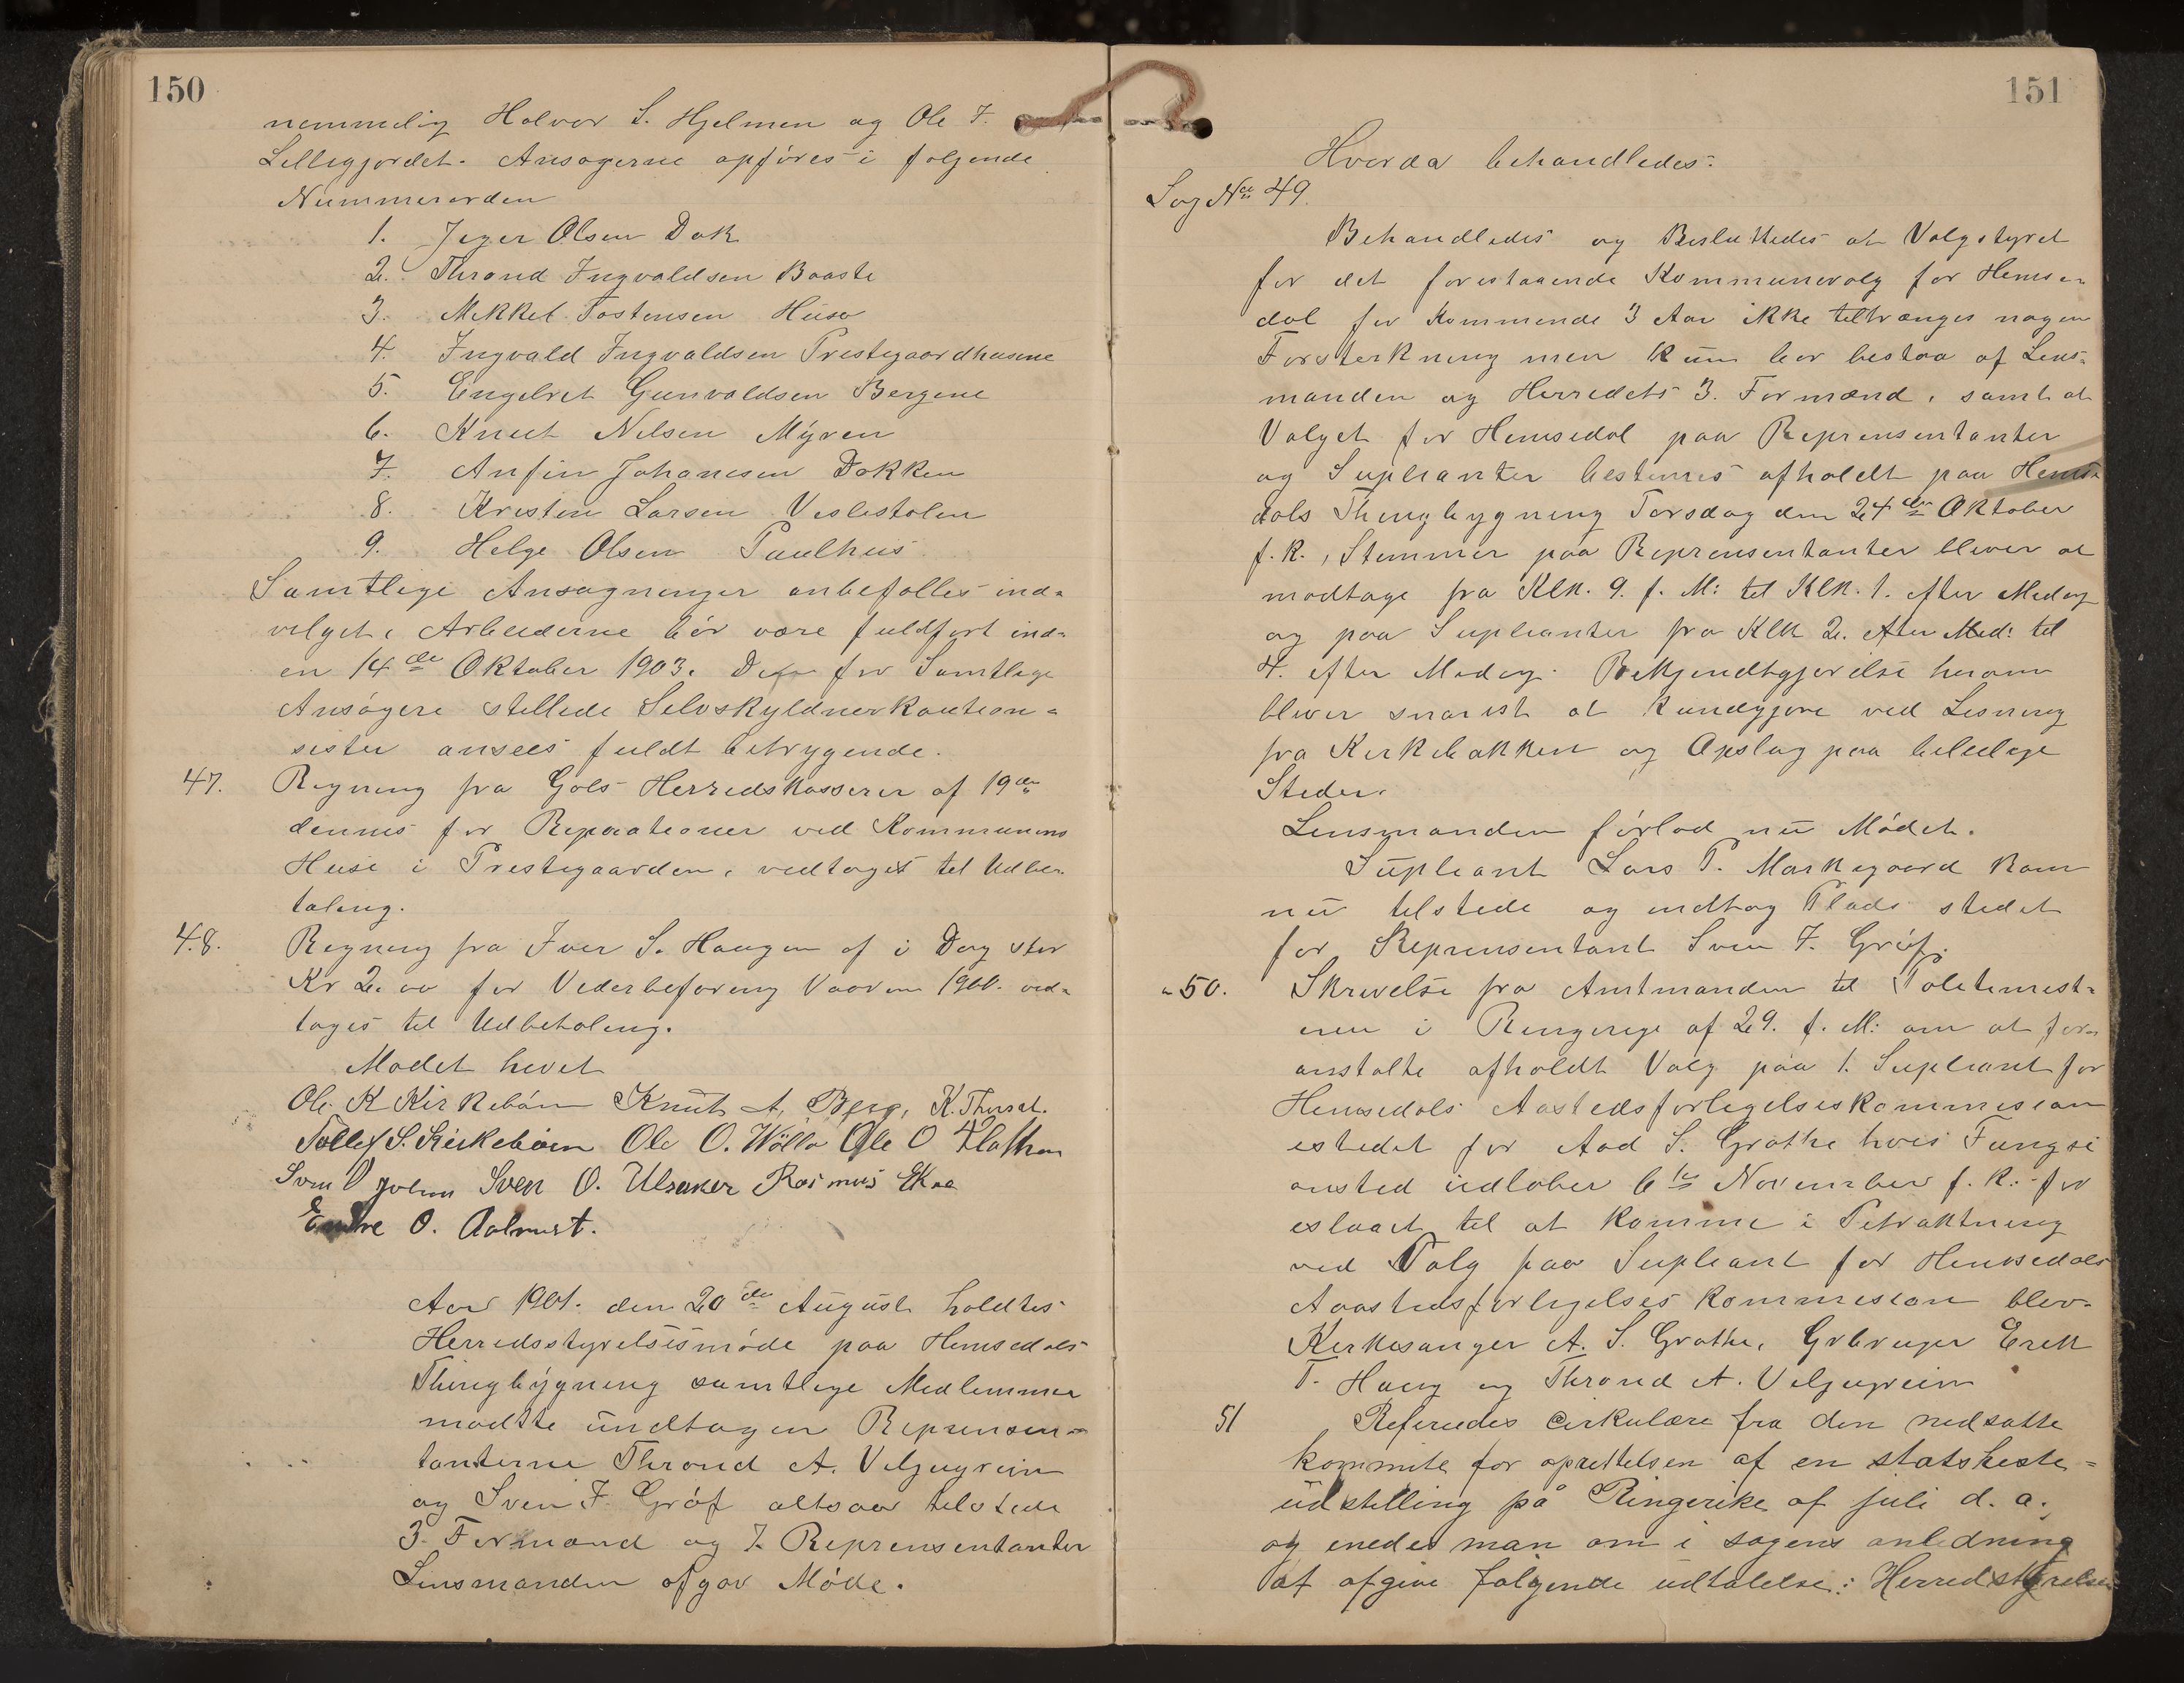 150
nemmelig Halvor S. Hjelmen og Ole T.
Lilleg jordet. Ansøgerne opføres i følgende
Nummerorden
1. Jeger Olsen Dok
2. Thrond Ingvaldsen Baaste
3. Mekkel Tostensen Huso
4. Ingvald Ingvaldsen Prestegaardhusene
5. Engebret Gunvaldsen Bergene
6. Knut Nilsen Myren
7. Anfin Johanesen Dokken
8. Kristen Larsen Veslestolen
9. Helge Olsen Paulhus
Samtlige Ansøgninger anbefalles ind-
vilget, Arbeiderne bør være fuldført ind-
en 14de Oktober 1903. De for Samtlige
Ansøgere stillede Selvskyldnerkaution-
sister ansees fuldt betryggende.
47. Regning fra Gols Herredskasserer af 19de
dennes for Reparationer ved Kommunens
Huse i Prestegaarden, vedtoges til Udbe-
taling.
48. Regning fra Iver S. Haugen af i Dag stor
Kr 2.00 for Vederbeføring Vaaren 1900. ved-
toges til Udbetaling.
Mødet hevet
Ole K Kirkebøen Knut A. Berg, K. Thorset.
Tollef S. Kirkebøen Ole O. Wøllo Ole O Flathen
Sven O Sven O. Ulsaker Rasmus Ekre
Endre O. Aalrust.
Aar 1901. den 20de August holdtes
Herredsstyrelsesmøde paa Hemsedals
Thingbygning samtlige Medlemmer
mødtte undtagen Reprensen-
tanterne Thrond A. Veljugrein
og Sven T. Grøf altsaa tilstede
3. Formænd og 7. Reprensentanter
Lensmanden afgav Møde.
151
Hvorda behandledes:
Sag No 49.
Behandledes og Besluttedes at Valgstyret
for det forestaaende Kommunevalg for Hemse-
dal for kommende 3 Aar ikke tiltrænges nogen
Forsterkning men kun bør bestaa af Lens-
manden og Herredets 3. Formænd, samt at
Valget for Hemsedal paa Reprensentanter
og Suplianter bestemes afholdt paa Hemse-
dals Thingbygning Torsdag den 24de Oktober
f. k., Stemmer paa Reprensentanter bliver at
modtage fra Klk. 9. f. M: til Klk. 1. efter Medag
og paa Suplianter fra Klk 2. efter Med: til
4. efter Medag. Bekjendtgjørelse herom
bliver snarest at kundgjøre ved Lesning
fra Kirkebakken og Opslag paa beleilige
Steder.
Lensmanden førlod nu Mødet.
Supleant Lars P. Markegaard kom
nu tilstede og indtog Plads stedet
for Reprensentant Sven T. Grøf.
" 50. Skrivelse fra Amtmanden til Politimest-
eren i Ringerige af 29. f. M: om at for-
anstalte afholdt Valg paa 1. Supleant for
Hemsedals Aastedsforligelseskommission
istedet for Aad S. Grøthe hvis Fungsi
onsted udløber 6te November f. k. for
eslaaet til at komme i Betraktning
ved Valg paa Supleant for Hemsedals
Aaastedsforligelses kommission blev.
Kirkesanger A. S. Grøthe, Grbruger Erek
T. Haug og Thrond A. Veljugrein
51 Refereredes cirkulære fra den nedsatte
kommite for oprettelsen af en statsheste-
udstilling på Ringerike af juli d. a.
og enedes man om i sagens anledning
at afgive følgende udtalelse: Herredstyrelsen